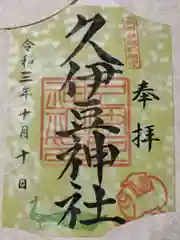 奉拝
久伊豆神社
令和三年十月十日